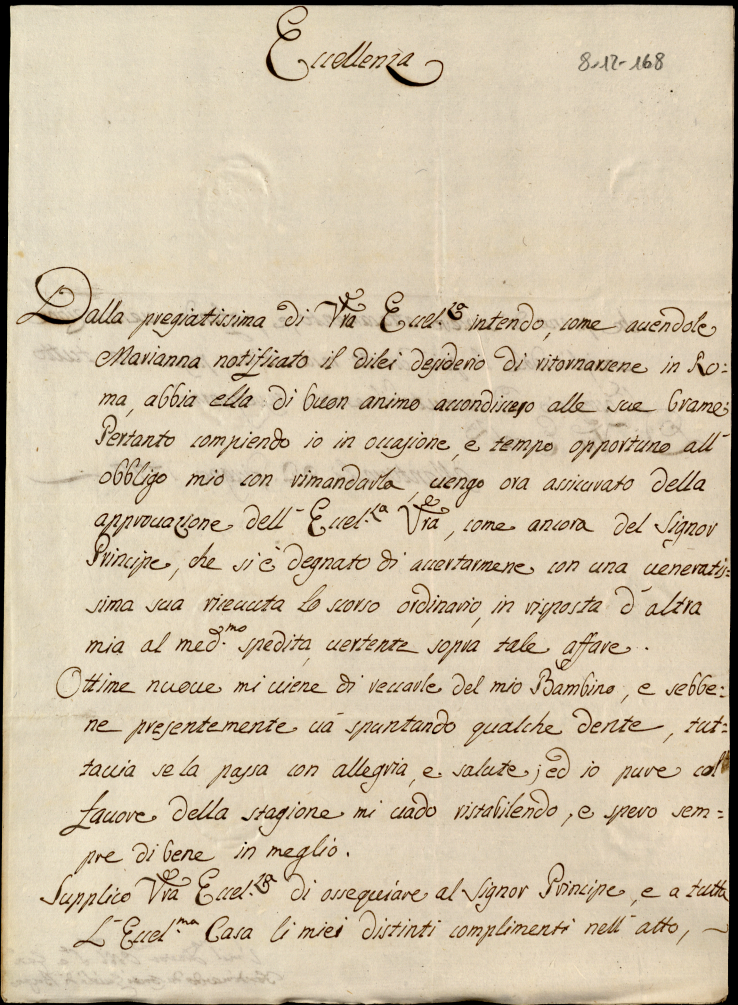 Eccellenza
8-12-168
Dalla pregiatissima di Vrã Eccel.za intendo, come avendole
Marianna notificato il dilei desiderio di ritornarsene in Ro=
ma, abbia ella di buon animo accondisceso alle sue brame;
Pertanto compiendo io in occasione, e tempo opportuno all'
obbligo mio con rimandarla, vengo ora assicurato della
approvazione dell' Eccel.za Vrã, come ancora del Signor
Principe, che si è degnato di accertarmene con una veneratis=
sima sua ricevuta lo scorso ordinario, in risposta d'altra
mia al med.mo spedita, vertente sopra tale affare.
Ottime nuove mi viene di recarle del mio Bambino, e sebbe=
ne presentemente và spuntando qualche dente, tut=
tavia se la passa con allegria, e salute; ed io pure col
favore della stagione mi vado ristabilendo, e spero sem=
pre di bene in meglio.
Supplico Vrã Eccel.za di ossequiare al Signor Principe, e a tutta
L'Eccel.ma Casa li miei distinti complimenti nell' atto,